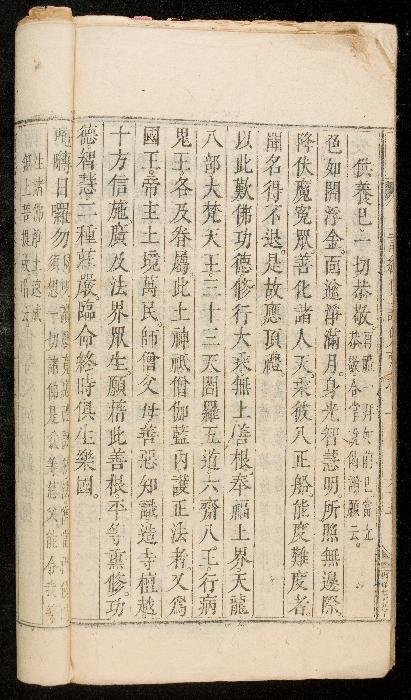 供養已一切恭敬再禮一拜如前已當立恭敬合掌說偈讚願云
色如閻浮金。面逾淨滿月。身光智慧明。所照無邊際。
降伏魔冤眾。善化諸人天。乘彼八正船。能度難度者。
聞名得不退。是故應頂禮。
以此歎佛功德。修行大乘無上善根。奉福上界天龍
八部大梵天王。三十三天閻羅五道六齋八王。行病
鬼王。各及眷屬。此土神祇僧伽藍內護正法者。又為
國王帝主土境萬民。師僧父母善惡知識。造寺檀越。
十方信施。廣及法界眾生。願藉此善根平等熏修。功
德智慧二種莊嚴。臨命終時俱生樂國。